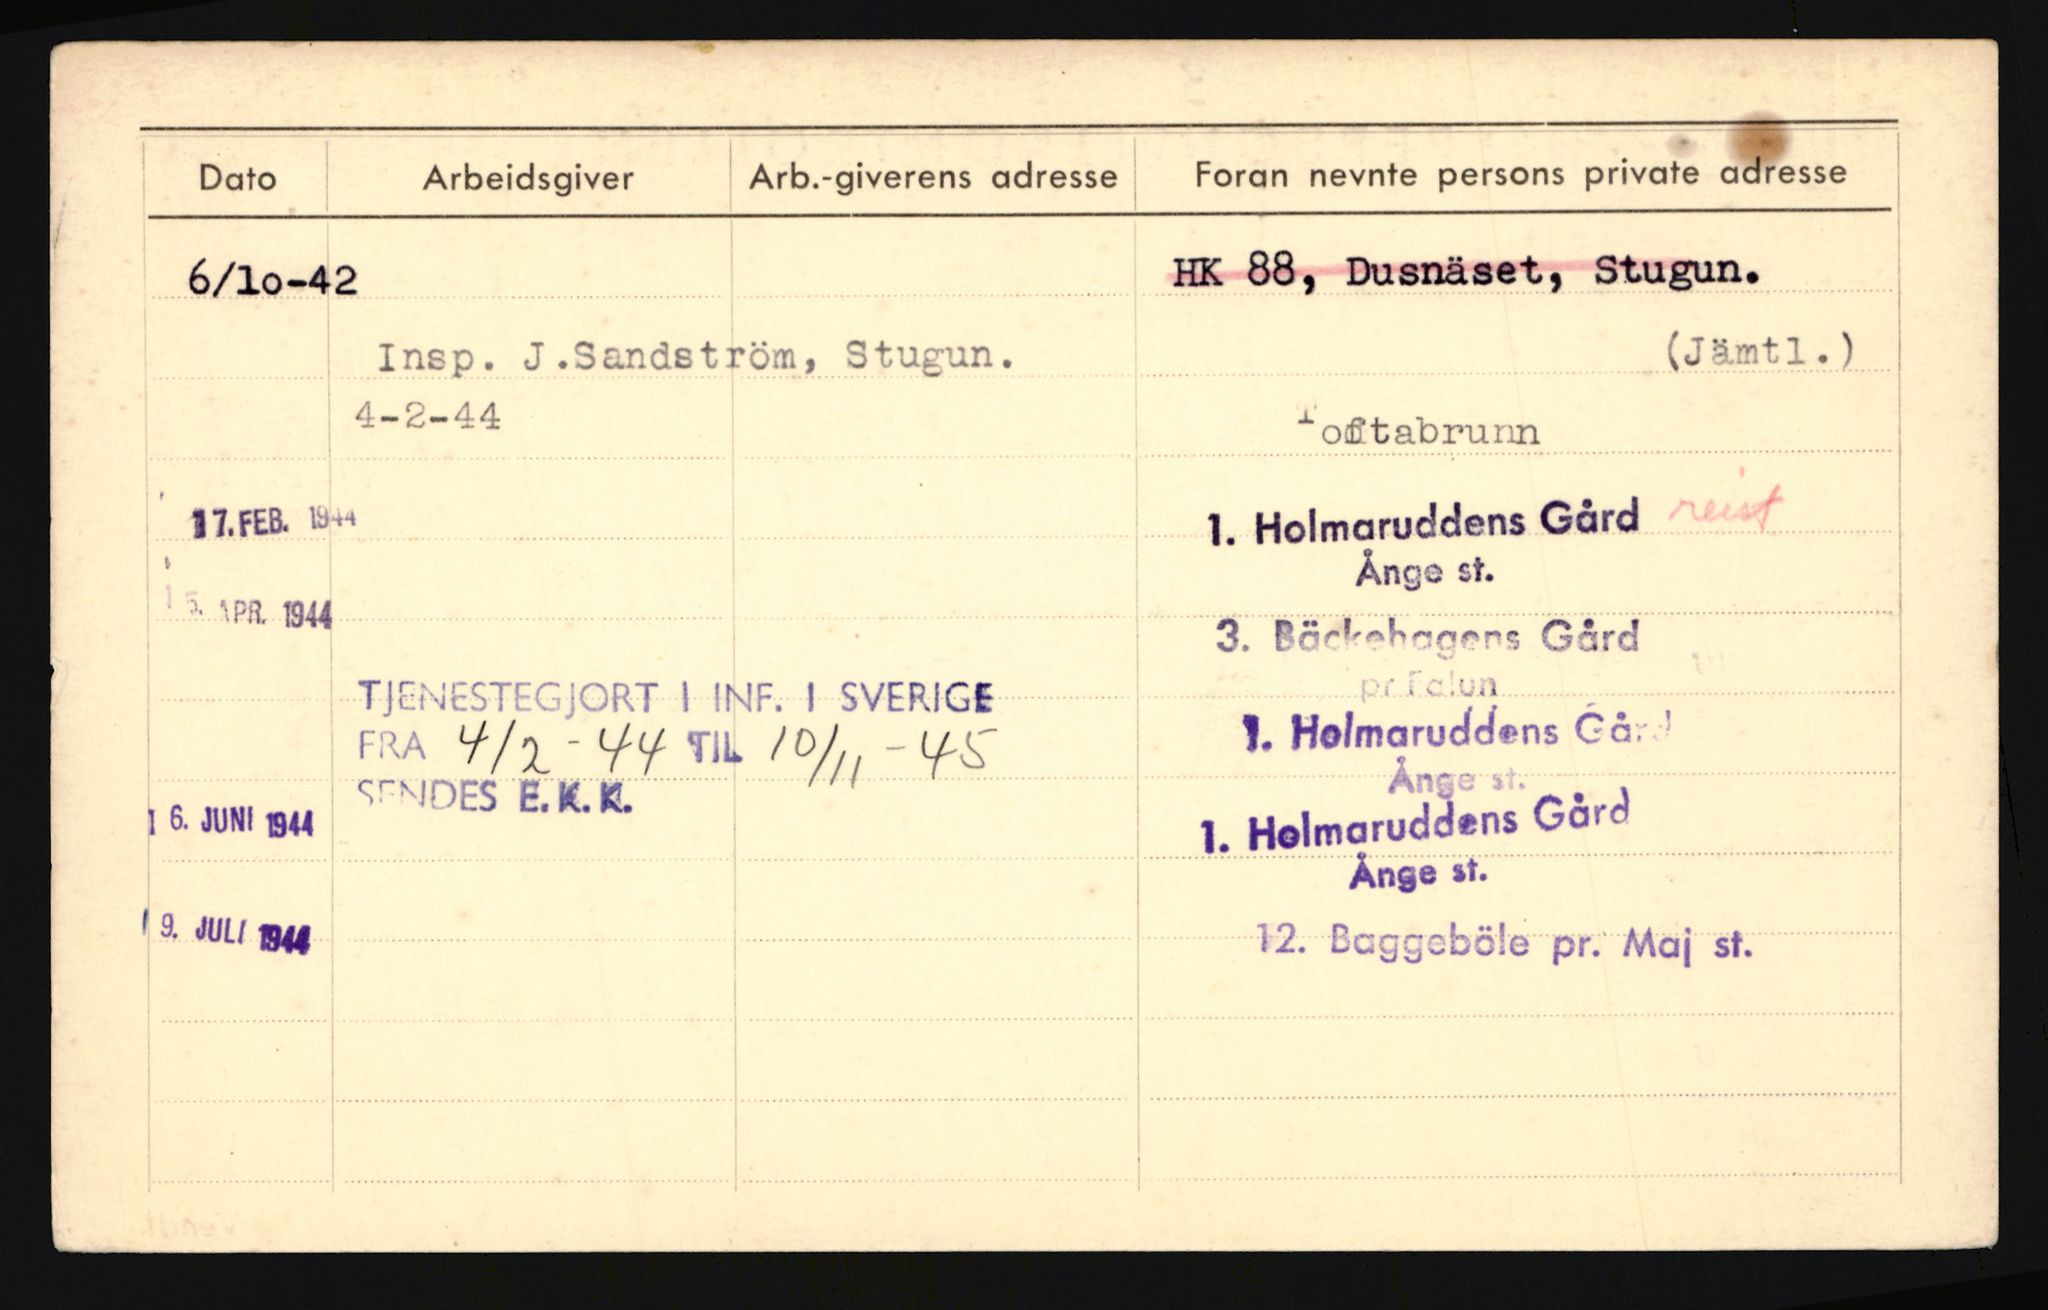 Dato Arbeidsgiver Arb.-giverens adresse Foran nevnte persons private adresse
6/1o-42 HK 88, Dusnäset, Stugun.
Insp. J.Sandström, Stugun. (Jämtl.)
4-2-44 Toftabrunn
17. FEB. 1944 1. Holmaruddens Gård reist
Ånge st.
15. APR. 1944 3. Bäckehagens Gård
pr Falun
TJENESTEGJORT I INF. I SVERIGE
1. Holmaruddens Gård
FRA 4/2-44 TIL 10/11-45
Ånge st.
SENDES E.K.K.
16. JUNI 1944 1. Holmaruddens Gård
Ånge st.
19. JULI 1944 12. Baggeböle pr. Maj st.